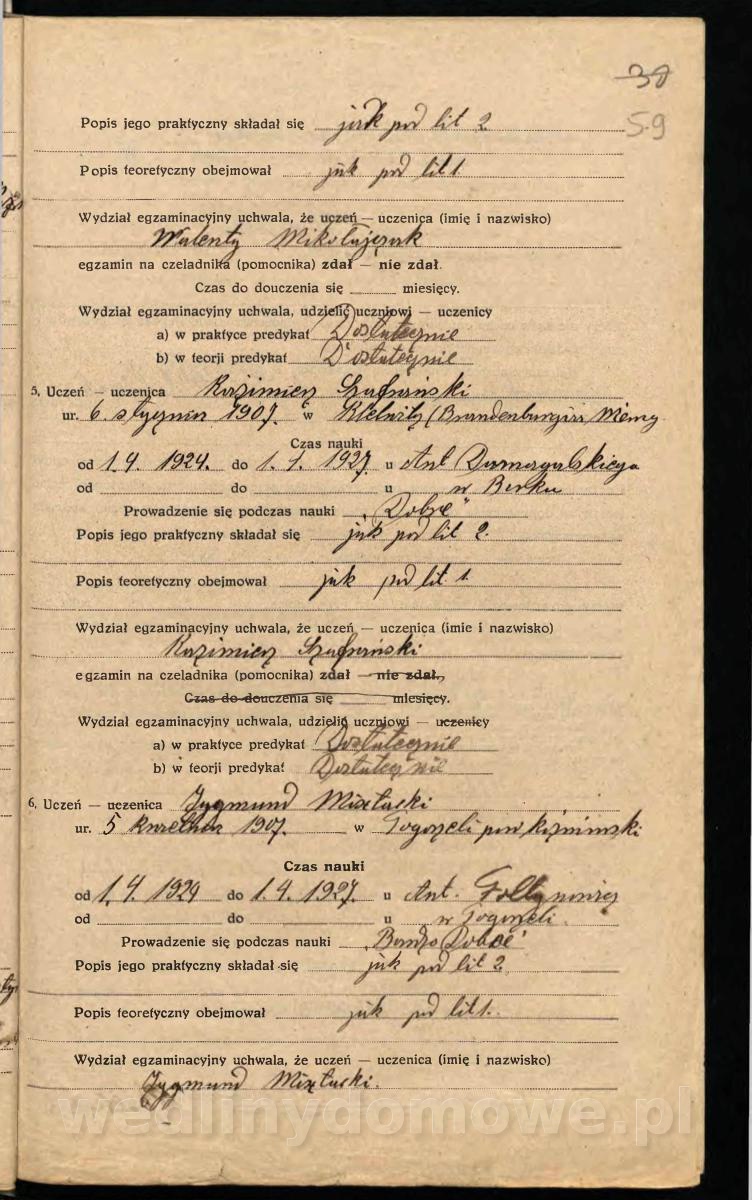 38
59
Popis jego praktyczny składał się jak pod lit 2.
Popis teoretyczny obejmował jak pod lit 1.
Wydział egzaminacyjny uchwala, że uczeń — uczenica (imię i nazwisko)
Walenty Mikołajczak
egzamin na czeladnika (pomocnika) zdał — nie zdał.
Czas do douczenia się miesięcy.
Wydział egzaminacyjny uchwala, udzielić uczniowi — uczenicy
a) w praktyce predykat Dostatecznie
b) w teorji predykat Dostatecznie
5. Uczeń — uczenica Kazimierz Szafrański
ur. 6 stycznia 1907. w (Brandenburgii Niemcy
Czas nauki
od 1.4 1924. do 1.1. 1927. u Ant
od do u w Borku
Prowadzenie się podczas nauki „Dobre"
Popis jego praktyczny składał się jak pod lit 2.
Popis teoretyczny obejmował jak pod lit. 1.
Wydział egzaminacyjny uchwala, że uczeń — uczenica (imie i nazwisko)
Kazimierz Szafrański
egzamin na czeladnika (pomocnika) zdał — nie zdał.
Czas do douczenia się miesięcy.
Wydział egzaminacyjny uchwala, udzielić uczniowi — uczenicy
a) w praktyce predykat Dostatecznie
b) w teorji predykat Dostatecznie
6. Uczeń — uczenica Zygmund
ur. 5 kwietnia 1907. w Pogorzeli pow
Czas nauki
od 1.4 1924 do 1.4. 1927. u Ant.
od do u w Pogorzeli.
Prowadzenie się podczas nauki „Bardzo Dobre"
Popis jego praktyczny składał się jak pod lit 2.
Popis teoretyczny obejmował jak pod lit 1.
Wydział egzaminacyjny uchwala, że uczeń — uczenica (imię i nazwisko)
Zygmund
wedlinydomowe.pl